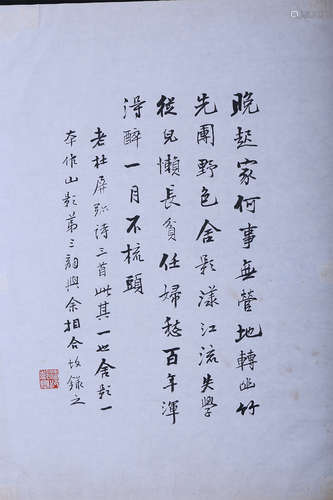 晚起家何事無營地轉幽竹
光團野色舍影漾江流失學
從兒懶長貧任婦愁百年渾
得醉一月不梳頭
老杜屏跡詩三首此其一也舍影一
本作山影第三韻與余相合故錄之